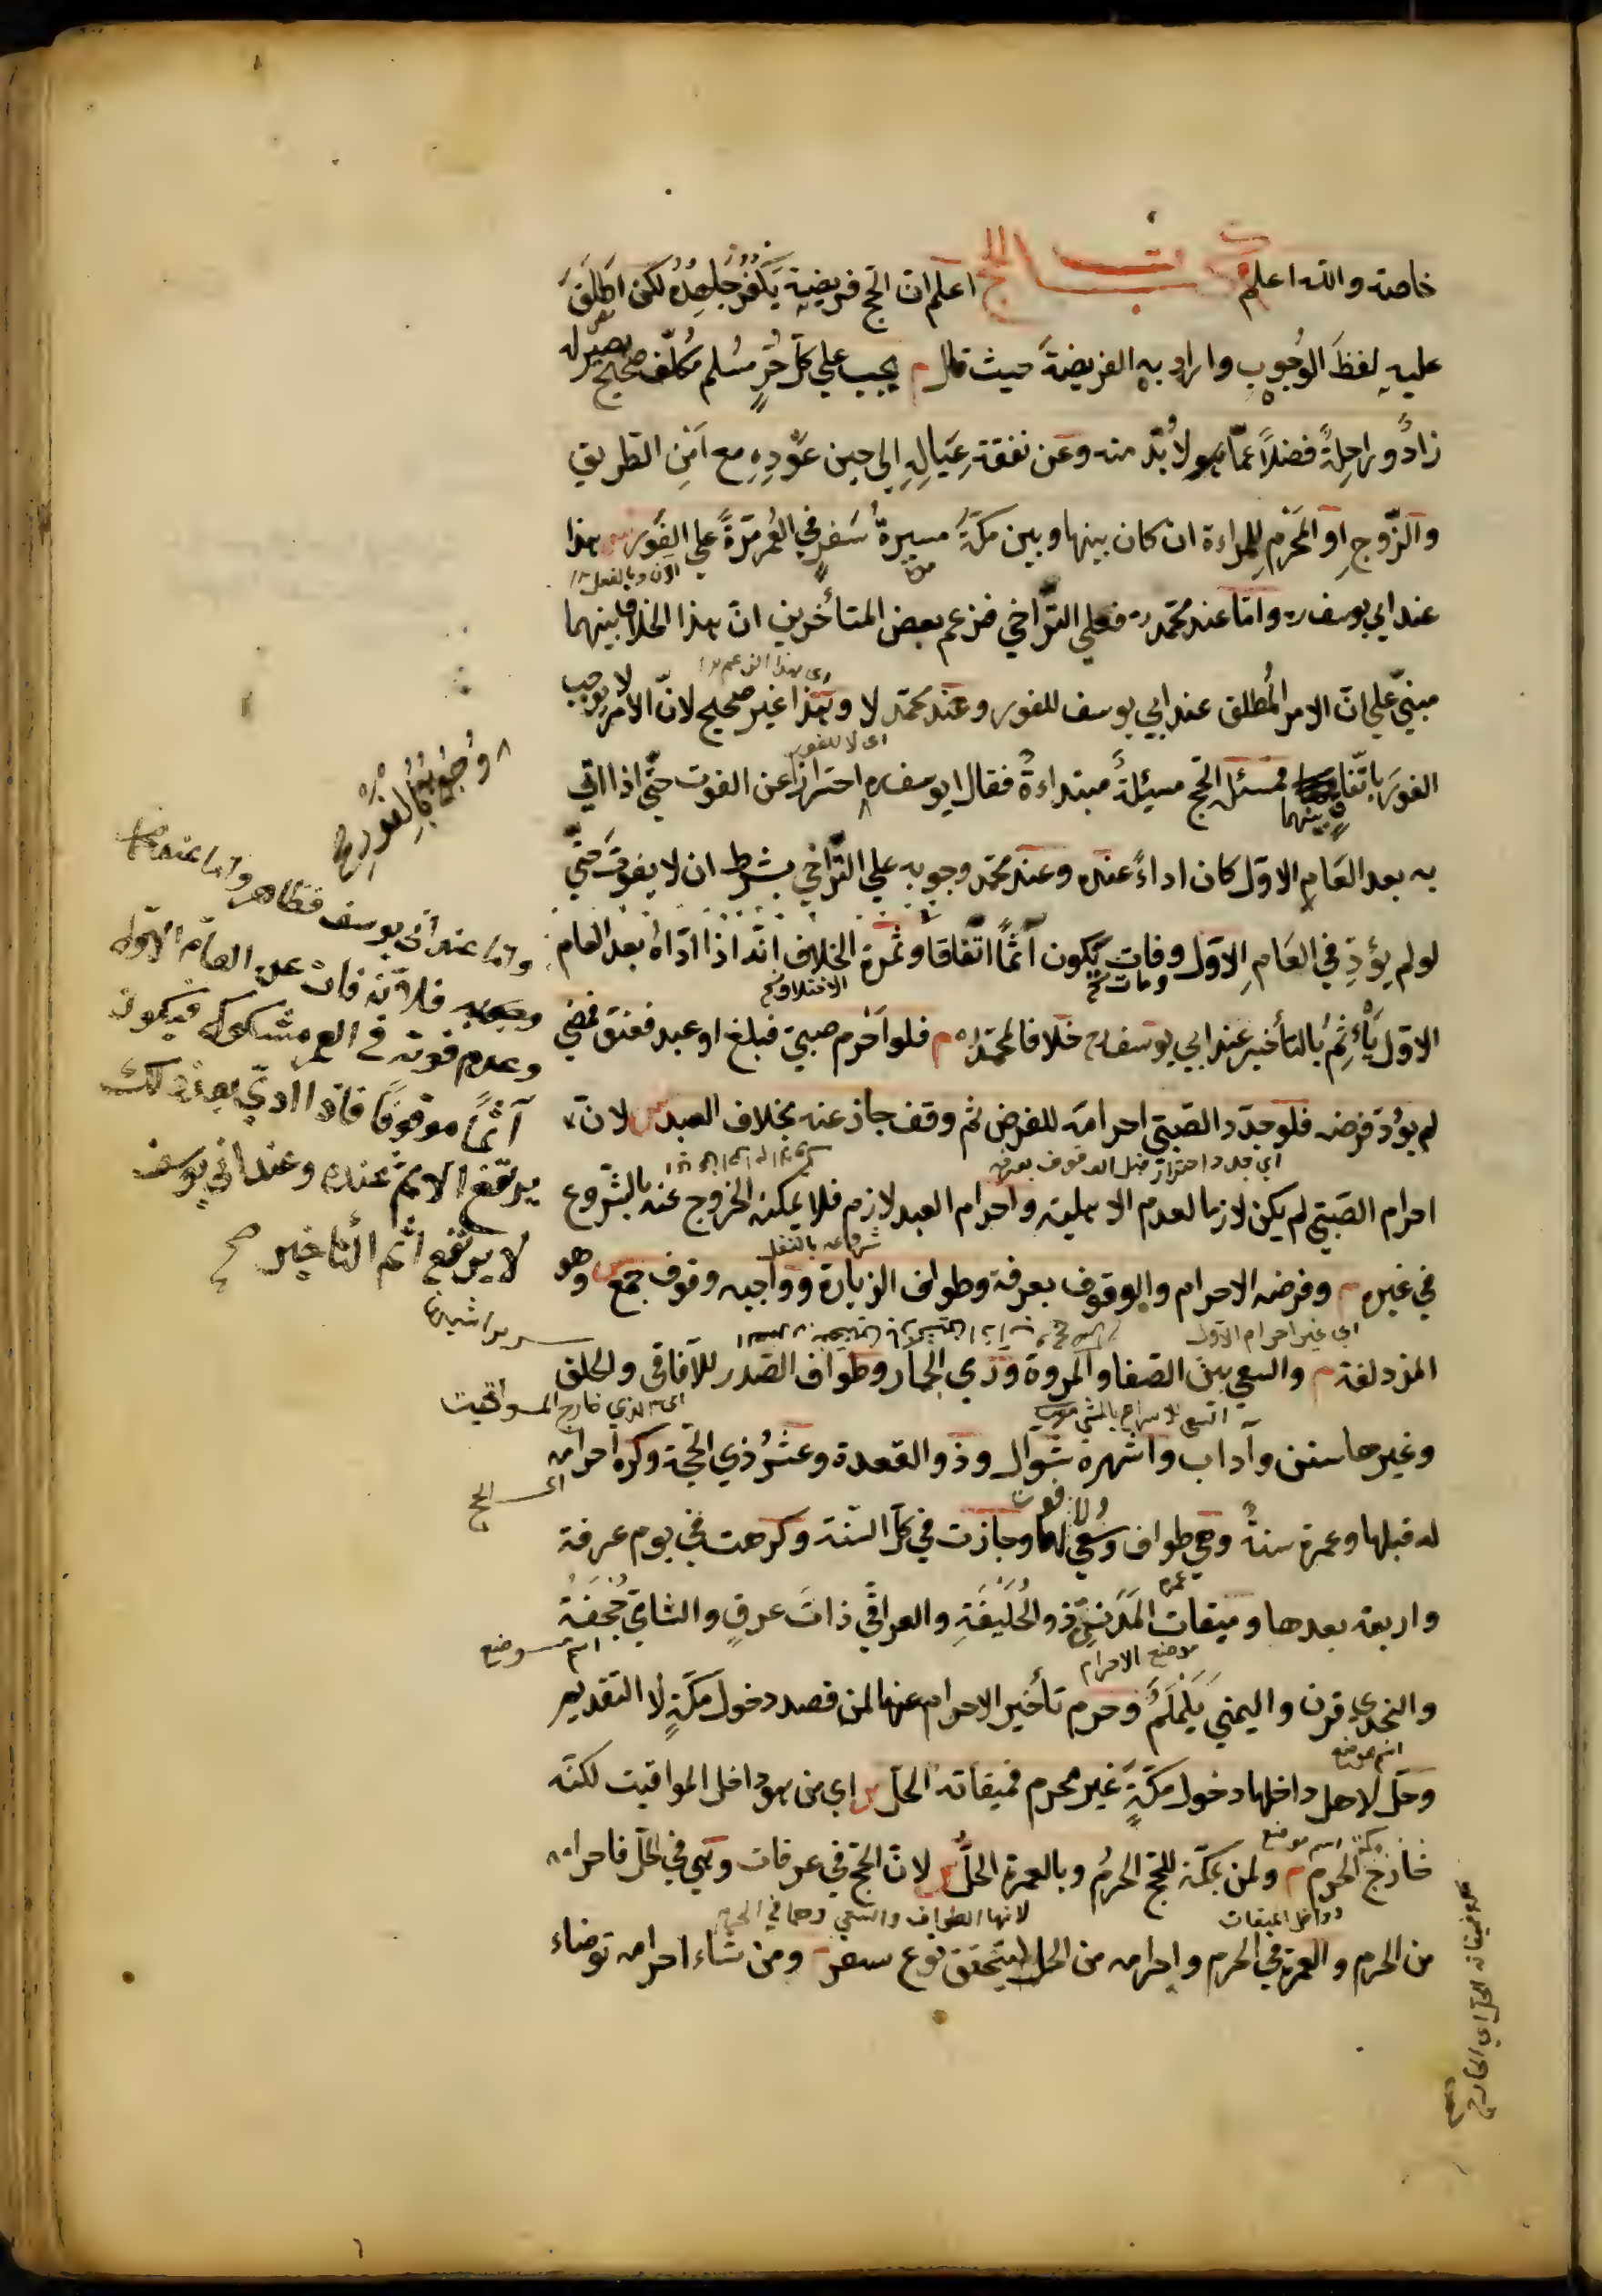 خاصة والله اعلم كتاب الحج اعلم ان الحج فريضية يكفر جاحده لكن اطلق
عليه لفظ الوجوب واراد به الفريضة حيث قال م يجب على كل حر مسلم مكلف صحيح بصير له
زاد وراحلة فضلا عما لا بد منه وعن نفقة عياله الى حين عوده مع امن الطريق
والزوج او المحرم للمراءة ان كان بينها وبين مكة مسيرة سفر في العمر مرة على الفور هذا
عند ابي يوسف ره واما عند محمد ره فعلى التراخي فزعم بعض المتأخرين ان هذا الخلاف بينهما
مبني على ان الامر المطلق عند ابي يوسف للفور وعند محمد لا وهذا غير صحيح لان الامر لا يوجب
اى لا للفور
الفور باتفاق بينهما فمسئلة الحج مسئلة مبتداءة فقال ابو يوسف ره احترازا عن الفوت حتى اذا اتى
به بعد العام الاول كان اداء عنده وعند محمد وجوبه على التراخي بشرط ان لا يفوت حتى
لو لم يؤد في العام الاول وفات يكون آثما اتفاقا وثمرة الخلاف انه اذا اداه بعد العام
ومات
الاول يأثم بالتأخير عند ابي يوسف ره خلافا لمحمد ره م فلو احرم صبي فبلغ او عبد فعتق فمضى
لم يؤد فرضه فلو جدد الصبي احرامه للفرض ثم وقف جاز عنه بخلاف العبد ش لان
احرام الصبي لم يكن لازما لعدم الاهلية واحرام العبد لازم فلا يمكنه الخروج عنه بالشروع
شروعه بالنفل
في غيره م وفرضه الاحرام والوقوف بعرفة وطواف الزيارة وواجبه وقوف جمع ش وهو
اي غير احرام الاول
المزدلفة م والسعي بين الصفا والمروة ورمي الجمار وطواف الصدر للآفاقي والحلق
اى الذي خارج المواقيت
وغيرها سنن وآداب واشهره شوال وذو القعدة وعشر ذي الحجة وكره احرامه
اى الحج
له قبلها وعمرة سنة وهي طواف وسعي ولا فوت لها وجازت في كل السنة وكرهت في يوم عرفة
واربعة بعدها وميقات المدني ذو الحليفة والعراقي ذات عرق والشامي جحفة
موضع الاحرام
اسم موضع
والنجدي قرن واليمني يلملم وحرم تأخير الاحرام عنها لمن قصد دخول مكة لا التقديم
اسم موضع
وحل لاهل داخلها دخول مكة غير محرم فميقاته الحل ش اي من هو داخل المواقيت لكنه
خارج الحرم م ولمن بمكة للحج الحرم وبالعمرة الحل ش لان الحج في عرفات وهي في الحل فاحرامه
وداخل الميقات
لانها الطواف والسعي وهما في الحرم
من الحرم والعمرة في الحرم واحرامه من الحل ليتحقق نوع سفر م ومن شاء احرامه توضاء
وجوبه بالفور
واما عند ابي يوسف فظاهر واما عند محمد
فلانه فات عن العام الاول
وعدم فوته في العمر مشكوك فيكون
آثما موقوفا فاذا ادى بعد ذلك
يرتفع الاثم عنده وعند ابي يوسف
لا يرتفع اثم التأخير صح